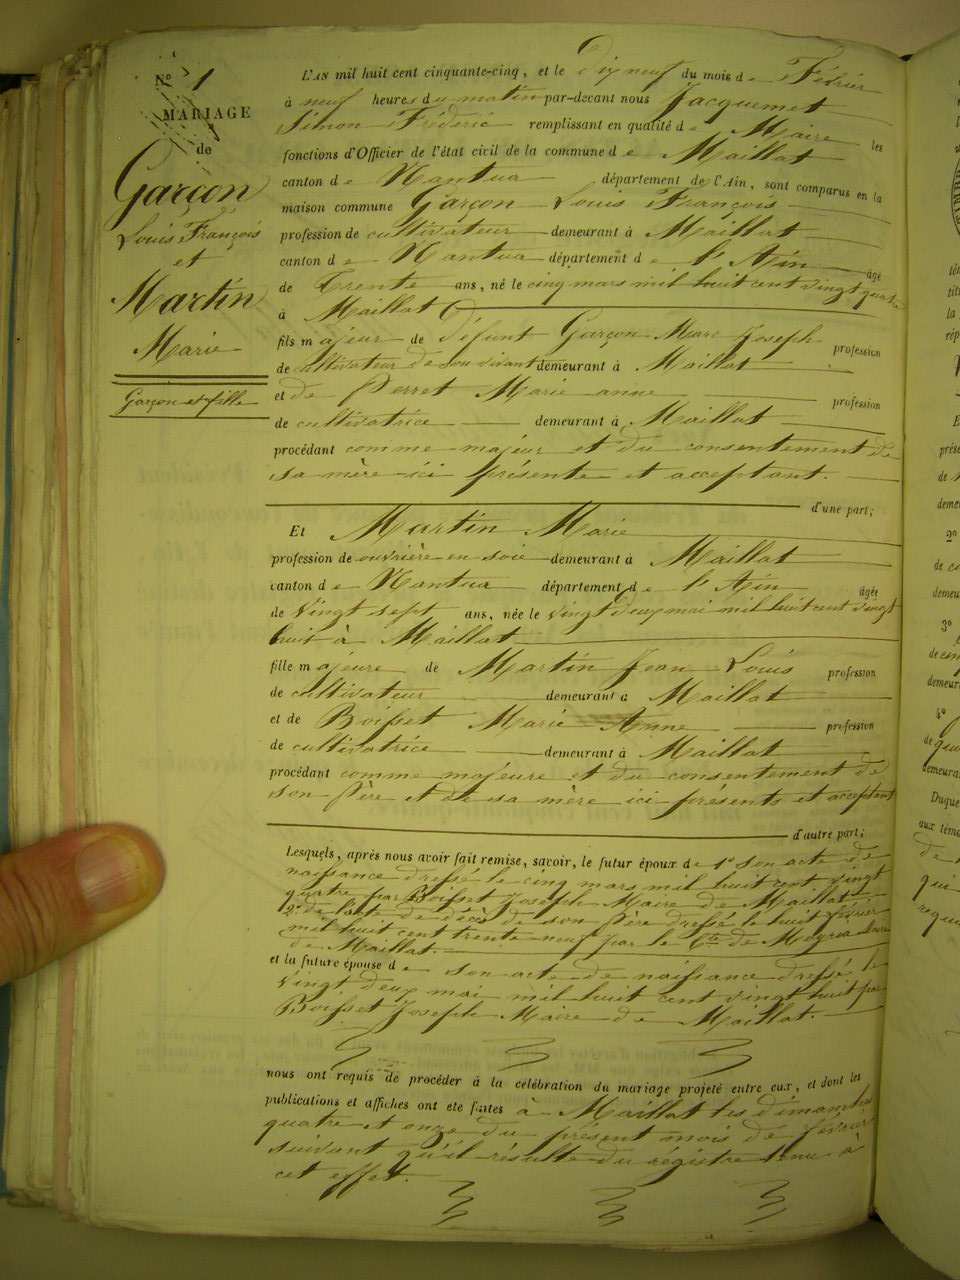 N° 1
MARIAGE
de
Garçon
Louis François
et
Martin
Marie
Garçon et fille
L'AN mil huit cent cinquante-cinq, et le Dix neuf du mois de Février
à neuf heures du matin par-devant nous Jacquemet
Simon Fréderic remplissant en qualité de Maire les
fonctions d'Officier de l'état civil de la commune de Maillat
canton de Nantua département de l'Ain, sont comparus en la
maison commune Garçon Louis François
profession de cultivateur demeurant à Maillat
canton de Nantua département de l'Ain âgé
de Trente ans, né le cinq mars mil huit cent vingt quatre
à Maillat
fils majeur de défunt Garçon Marc Joseph profession
de cultivateur de son vivant demeurant à Maillat
et de Perret Marie anne profession
de cultivatrice demeurant à Maillat
procédant comme majeur et du consentement de
sa mère ici présente et acceptant.
d'une part;
Et Martin Marie
profession de ouvrière en soie demeurant à Maillat
canton de Nantua département de l'Ain âgée
de Vingt sept ans, née le vingt deux mai mil huit cent vingt
huit à Maillat
fille majeure de Martin Jean Louis profession
de cultivateur demeurant à Maillat
et de Boisset Marie Anne profession
de cultivatrice demeurant à Maillat
procédant comme majeure et du consentement de
son Père et de sa mère ici présents et acceptant
d'autre part;
Lesquels, après nous avoir fait remise, savoir, le futur époux de 1° son acte de
naissance dressé le cinq mars mil huit cent vingt
quatre par Boisset Joseph Maire de Maillat
2° de l'acte de décès de son Père dressé le huit février
mil huit cent trente neuf par le Cte de Meyria Maire
de Maillat.
et la future épouse de son acte de naissance dressé le
vingt deux mai mil huit cent vingt huit par
Boisset Joseph Maire de Maillat.
nous ont requis de procéder à la célébration du mariage projeté entre eux, et dont les
publications et affiches ont été faites à Maillat les dimanches
quatre et onze du présent mois de février
suivant qu'il résulte du régistre tenu à
cet effet.